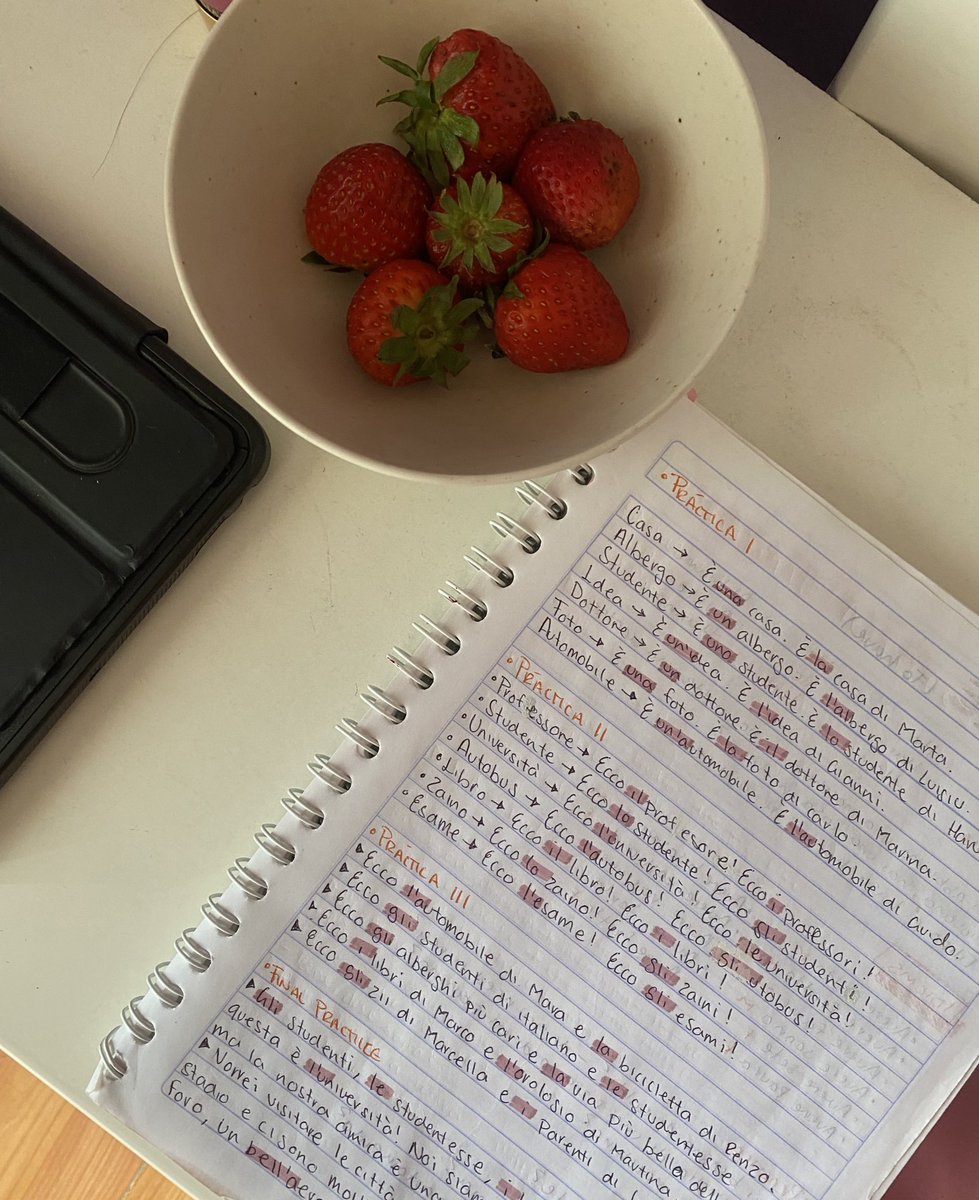 • PRÁCTICA I
Casa → È una casa. È la casa di Marta.
Albergo → È un albergo. È l'albergo di Lussiu
Studente → È uno studente. È lo studente di Han
Idea → È un'idea. È l'idea di Gianni.
Dottore → È un dottore. È il dottore di Marina.
Foto → È una foto. È la foto di carlo.
Automobile → È un'automobile. È l'automobile di Guido.
• PRÁCTICA II
• Professore → Ecco il professore! Ecco i professori!
• Studente → Ecco lo studente! Ecco gli studenti!
• Università → Ecco l'università! Ecco le università!
• Autobus → Ecco l'autobus! Ecco gli autobus!
• Libro → Ecco il libro! Ecco i libri!
• Zaino → Ecco lo zaino! Ecco gli zaini!
• Esame → Ecco l'esame! Ecco gli esami!
• PRÁCTICA III
▸ Ecco l'automobile di Mara e la bicicletta di Renzo
▸ Ecco gli studenti di italiano e le studentesse
▸ Ecco gli alberghi più cari e la via più bella dell
▸ Ecco i libri di Marco e l'orologio di Martina
▸ Ecco gli zii di Marcella e i Parenti di
• FINAL PRACTICE
▸ Gli studenti, le studentesse, i
questa è l'università! Noi siam
ma la nostra amica è una
▸ Vorrei visitare le città
stadio e ci sono mol
Foro, un bell'aer